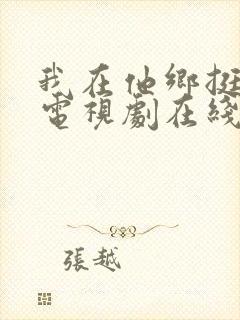 我在他鄉挺
電視劇在綫
張越